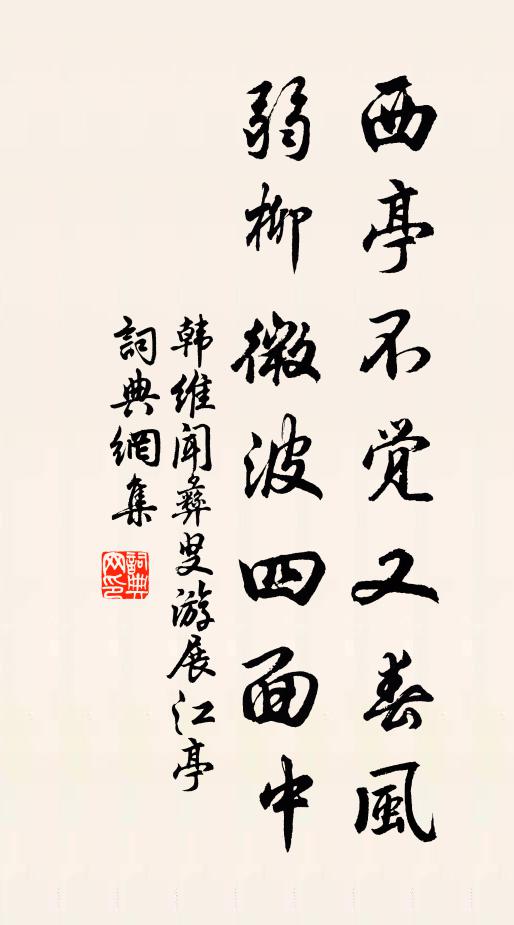 西亭不觉又春風
弱柳微波四面中
韩維闻彝叟游展江亭
詞典網集
詞典網印